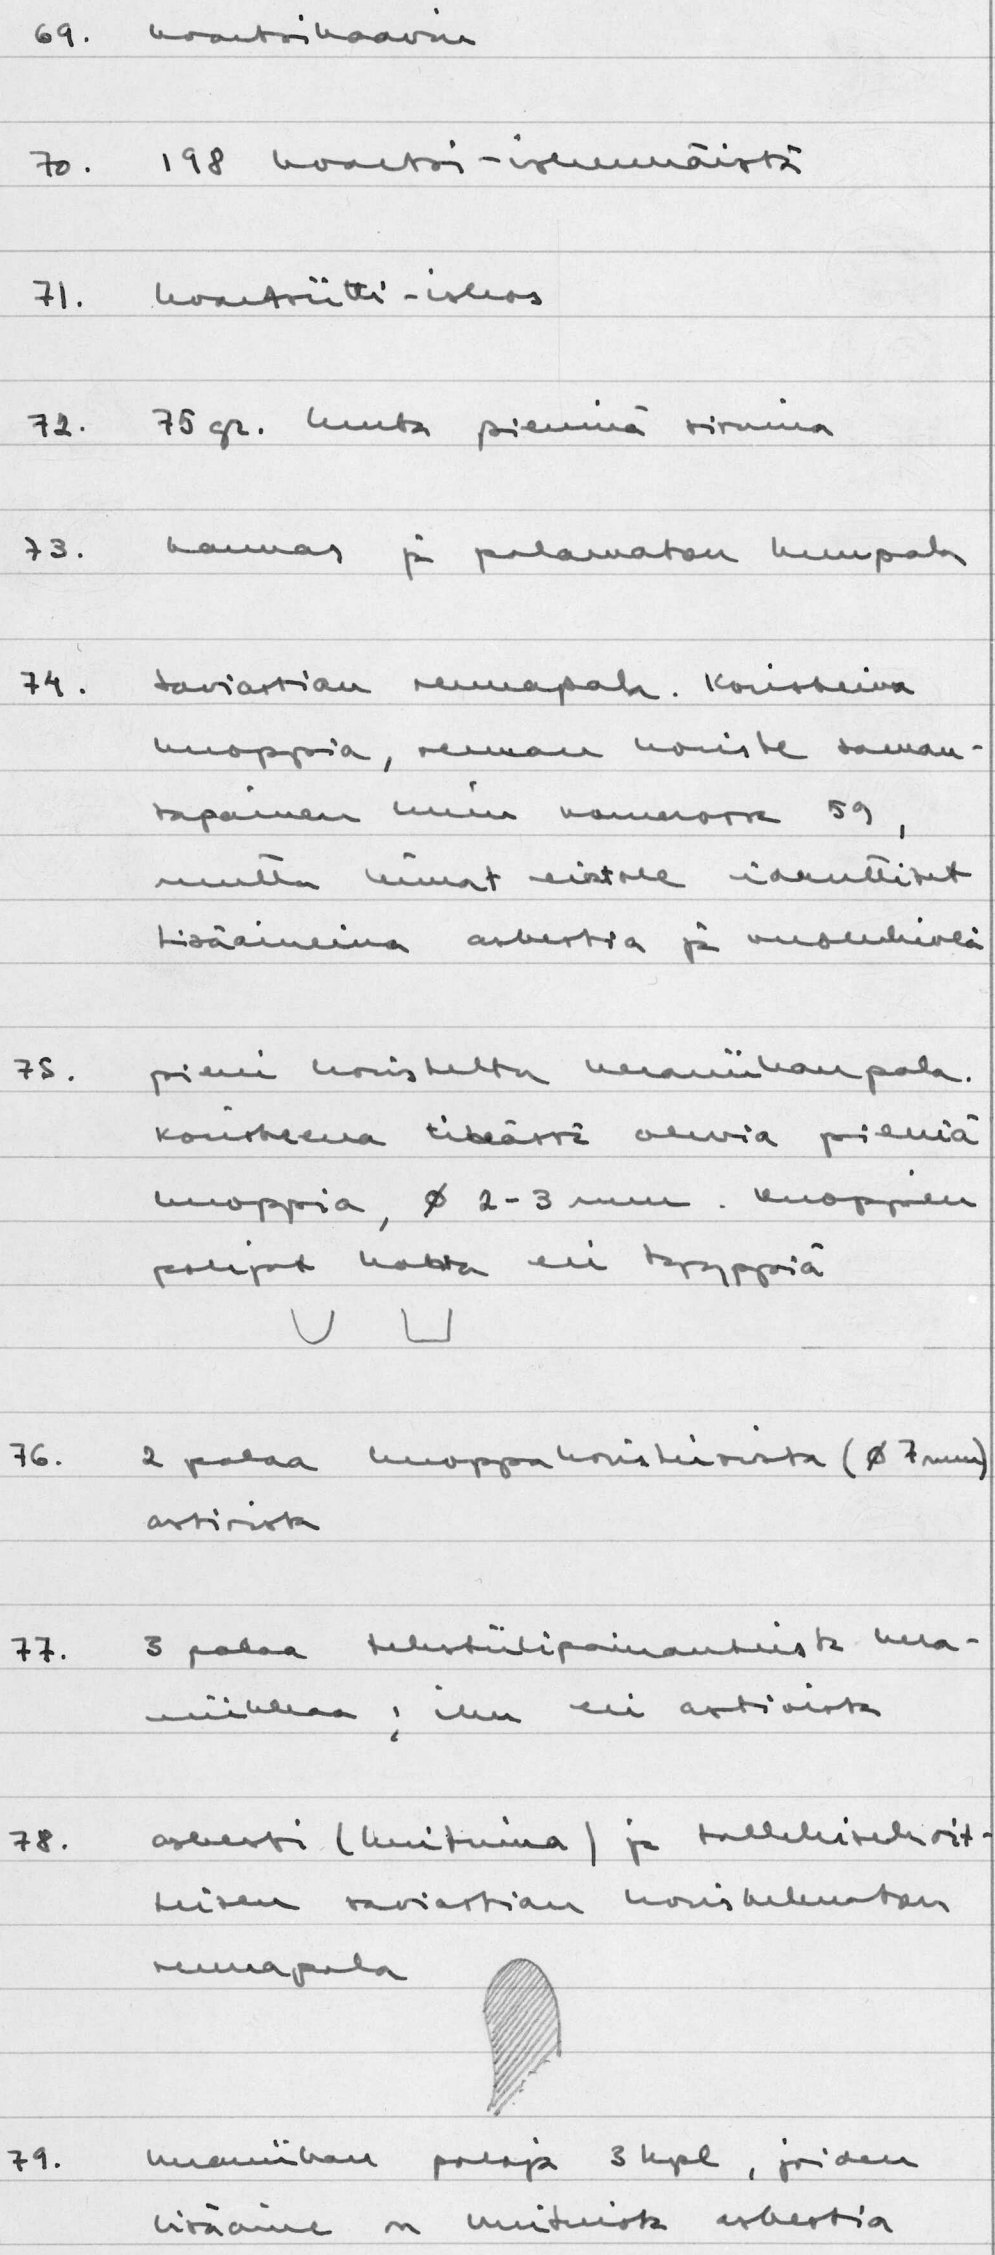 69. kvartsikaavin
70. 198 kvartsi-iskemäistä
71. kvartsiitti-iskos
72. 75 gr. luuta pieninä siruina
73. hammas ja palamaton luupala
74. saviastian reunapala. Koristeina
kuoppia, reunan koriste saman-
tapainen kuin numerossa 59,
mutta eivät ole identtiset
Lisäaineina asbestia ja vuolukiveä
75. pieni koristeltu keramiikanpala.
Koristeena tiheässä olevia pieniä
kuoppia, ø 2-3 mm. Kuoppien
pohjat kahta eri tyyppiä
76. 2 palaa kuoppakoristeisista (ø 7 mm)
astioista
77. 3 palaa tekstiilipainanteista kera-
miikkaa ; eri astioista
78. asbesti (kuituina) ja talkkisekoit-
teisen saviastian koristelematon
reunapala
79. keramiikan paloja 3 kpl, joiden
lisäaine on kuituista asbestia